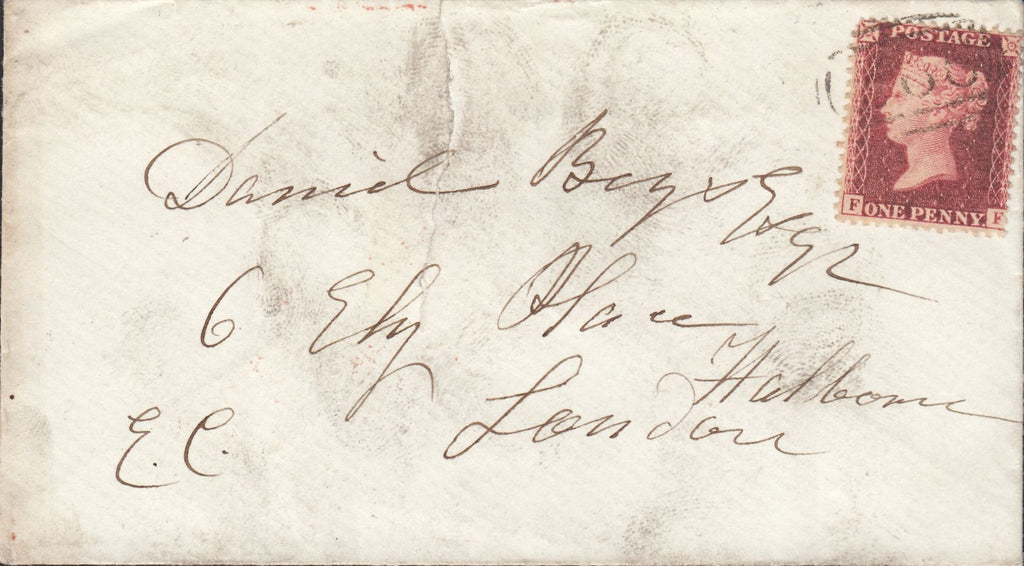 POSTAGE
F ONE PENNY. F
Daniel Esqr
6 Ely Place
Holborn
E.C. London